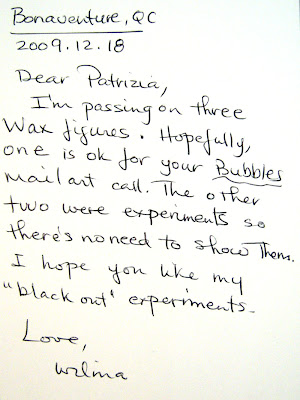 Bonaventure, QC
2009.12.18
Dear Patrizia,
I'm passing on three
Wax figures. Hopefully,
one is ok for your Bubbles
Mail art call. The other
two were experiments so
there's no need to show Them.
I hope you like my
"black out" experiments.
Love,
wilma